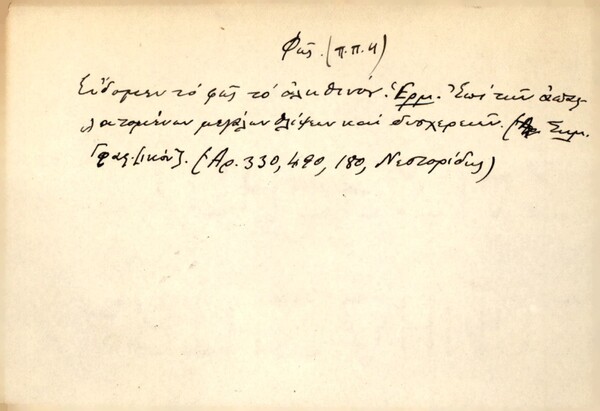 Φῶς. (π.π.4)
Εἴδομεν τό φῶς τό ἀληθινόν. Ἑρμ. Ἐπί τῶν ἀπαλ-
λατομένων μεγάλων θλίψεων καί δυσχερειῶν. (Συμ.
Γρας. (Ἀρ. 330, 490, 180, Νεστορίδης)